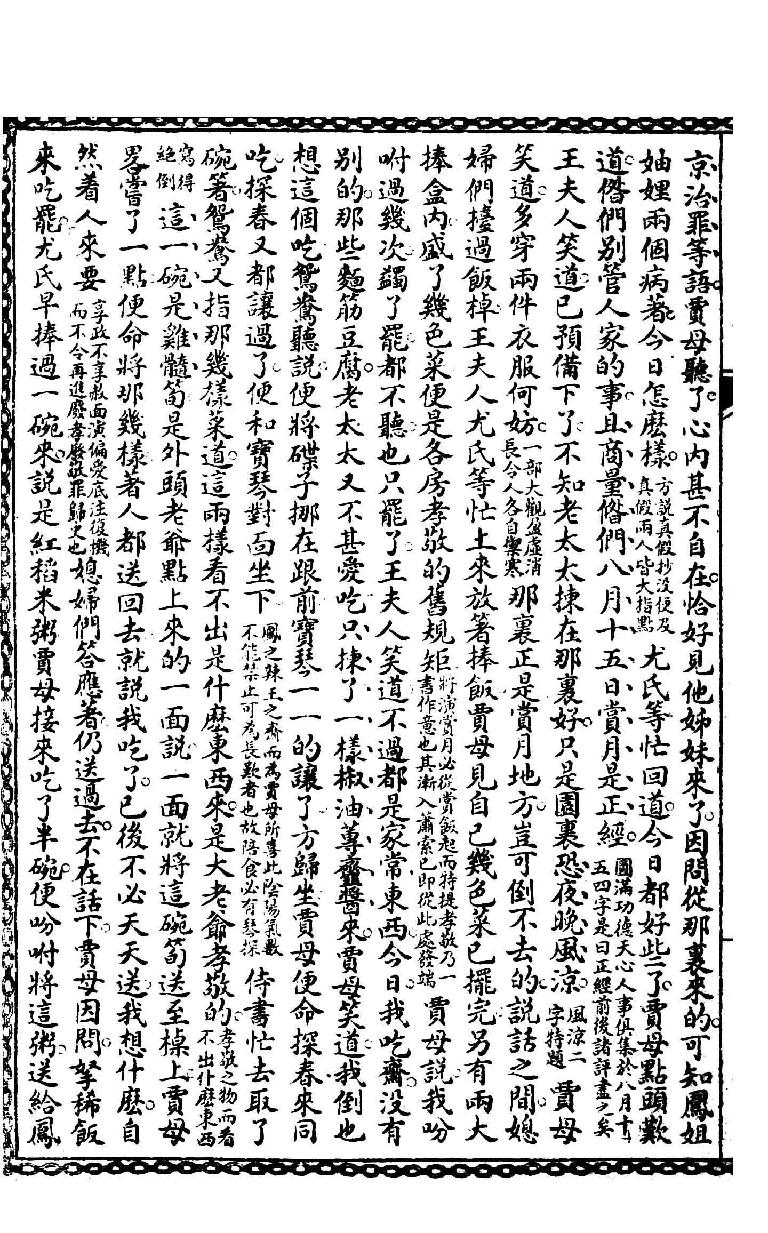 京治罪等語賈母聽了心内甚不自在恰好見他姊妹來了因問從那裏來的可知鳳姐
妯娌兩個病著今日怎麼樣方説真假抄没便及真假兩人皆大指點尤氏等忙回道今日都好些了賈母點頭歎
道偺們别管人家的事且商量偺們八月十五日賞月是正經圓滿功德天心人事俱集於八月十五四字是曰正經前後諸評盡之矣
王夫人笑道已預備下了不知老太太揀在那裏好只是園裏恐夜晚風涼風涼二字特題賈母
笑道多穿兩件衣服何妨一部大觀盈虚消長令人各自禦寒那裏正是賞月地方豈可倒不去的説話之間媳
婦們擡過飯棹王夫人尤氏等忙上來放箸捧飯賈母見自己幾色菜已擺完另有兩大
捧盒内盛了幾色菜便是各房孝敬的舊規矩將演賞月必從賞飯起而特提孝敬乃一書作意也其漸入蕭索已即從此處發端賈母説我吩
咐過幾次蠲了罷都不聽也只罷了王夫人笑道不過都是家常東西今日我吃齋没有
别的那些麵筋豆腐老太太又不甚愛吃只揀了一樣椒油蓴虀醬來賈母笑道我倒也
想這個吃鴛鴦聽説便將碟子挪在跟前寶琴一一的讓了方歸坐賈母便命探春來同
吃探春又都讓過了便和寶琴對面坐下鳳之辣王之齋而為賈母所喜此陰陽氣數不能禁止可為長歎者也故陪食必有琴探侍書忙去取了
碗箸鴛鴦又指那幾樣菜道這兩樣看不出是什麼東西來是大老爺孝敬的孝敬之物而看不出什麼東西
寫得絶倒這一碗是雞髓笋是外頭老爺點上來的一面説一面就將這碗笋送至棹上賈母
畧嘗了一點便命將那幾樣著人都送回去就説我吃了已後不必天天送我想什麼自
然着人來要享政不享赦面演偏愛底注復機而不令再進廢孝廢敬罪歸史也媳婦們答應著仍送過去不在話下賈母因問拏稀飯
來吃罷尤氏早捧過一碗來説是紅稻米粥賈母接來吃了半碗便吩咐將這粥送給鳳